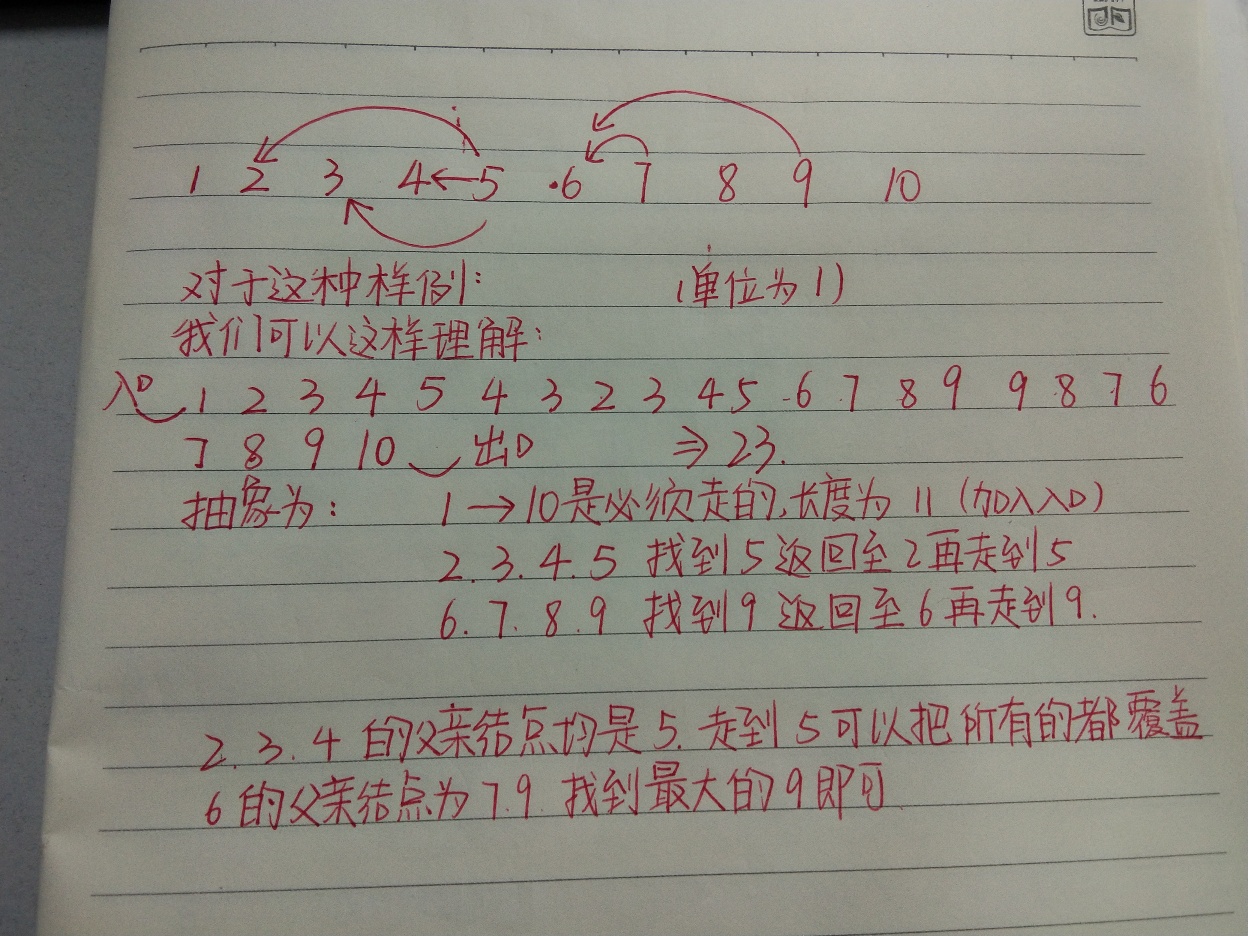 1 2 3 4←5 ·6 7 8 9 10
对于这种样例: (单位为1)
我们可以这样理解:
入口 1 2 3 4 5 4 3 2 3 4 5 6 7 8 9 9 8 7 6
7 8 9 10 出口 ⇒ 23.
抽象为: 1→10是必须走的,长度为 11 (加入入口)
2.3.4.5 找到5返回至2再走到5
6.7.8.9 找到9返回至6再走到9.
2.3.4 的父亲结点均是5.走到5可以把所有的都覆盖
6的父亲结点为7.9.找到最大的9即可